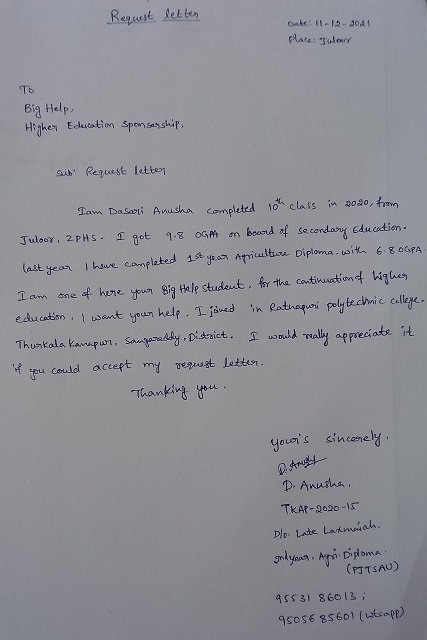 Request letter
Date: 11-12-2021
Place: Juloor
To
Big Help,
Higher Education Sponsership,
Sub: Request letter
Iam Dasari Anusha completed 10th class in 2020, from
Juloor, ZPHS. I got 9.8 OGPA on board of secondary Education.
last year I have completed 1st year Agriculture Diploma. with 6.8 OGPA.
I am one of here your Big Help student, for the continuation of higher
education. I want your help. I joined in Ratnapuri polytechnic college.
Thurkala Kanapur, Sangareddy, District. I would really appreciate it
if you could accept my request letter.
Thanking you.
your's sincerely.
D. Anusha.
TKAP-2020-15
D/o. Late Laxmaiah.
2nd year. Agri. Diploma.
(PJTSAU)
95531 86013 ;
9505685601 (wtsapp)